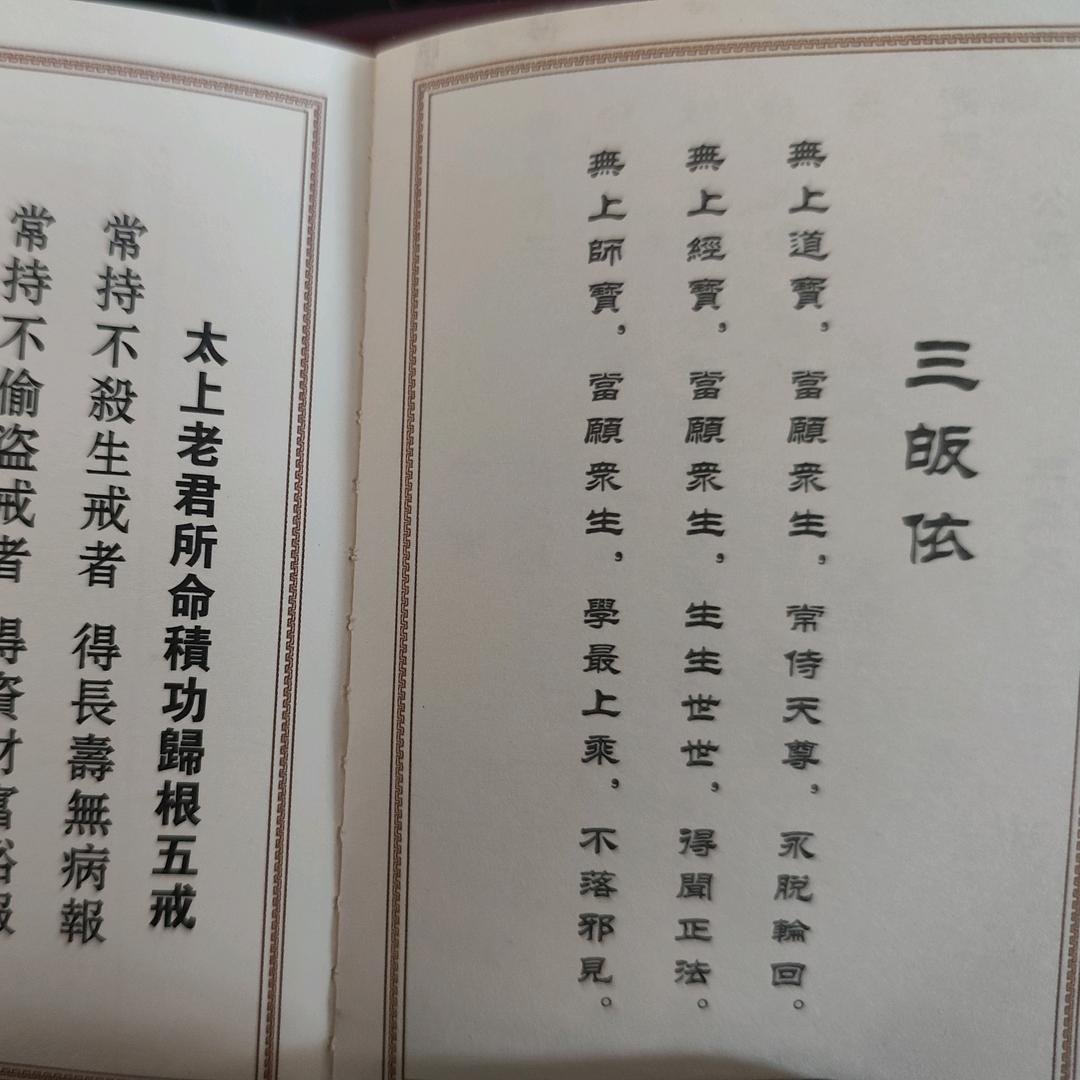 三皈依
無上道寶，當願衆生，常侍天尊，永脫輪回。
無上經寶，當願衆生，生生世世，得聞正法。
無上師寶，當願衆生，學最上乘，不落邪見。
太上老君所命積功歸根五戒
常持不殺生戒者 得長壽無病報
常持不偷盜戒者 得資財富裕報